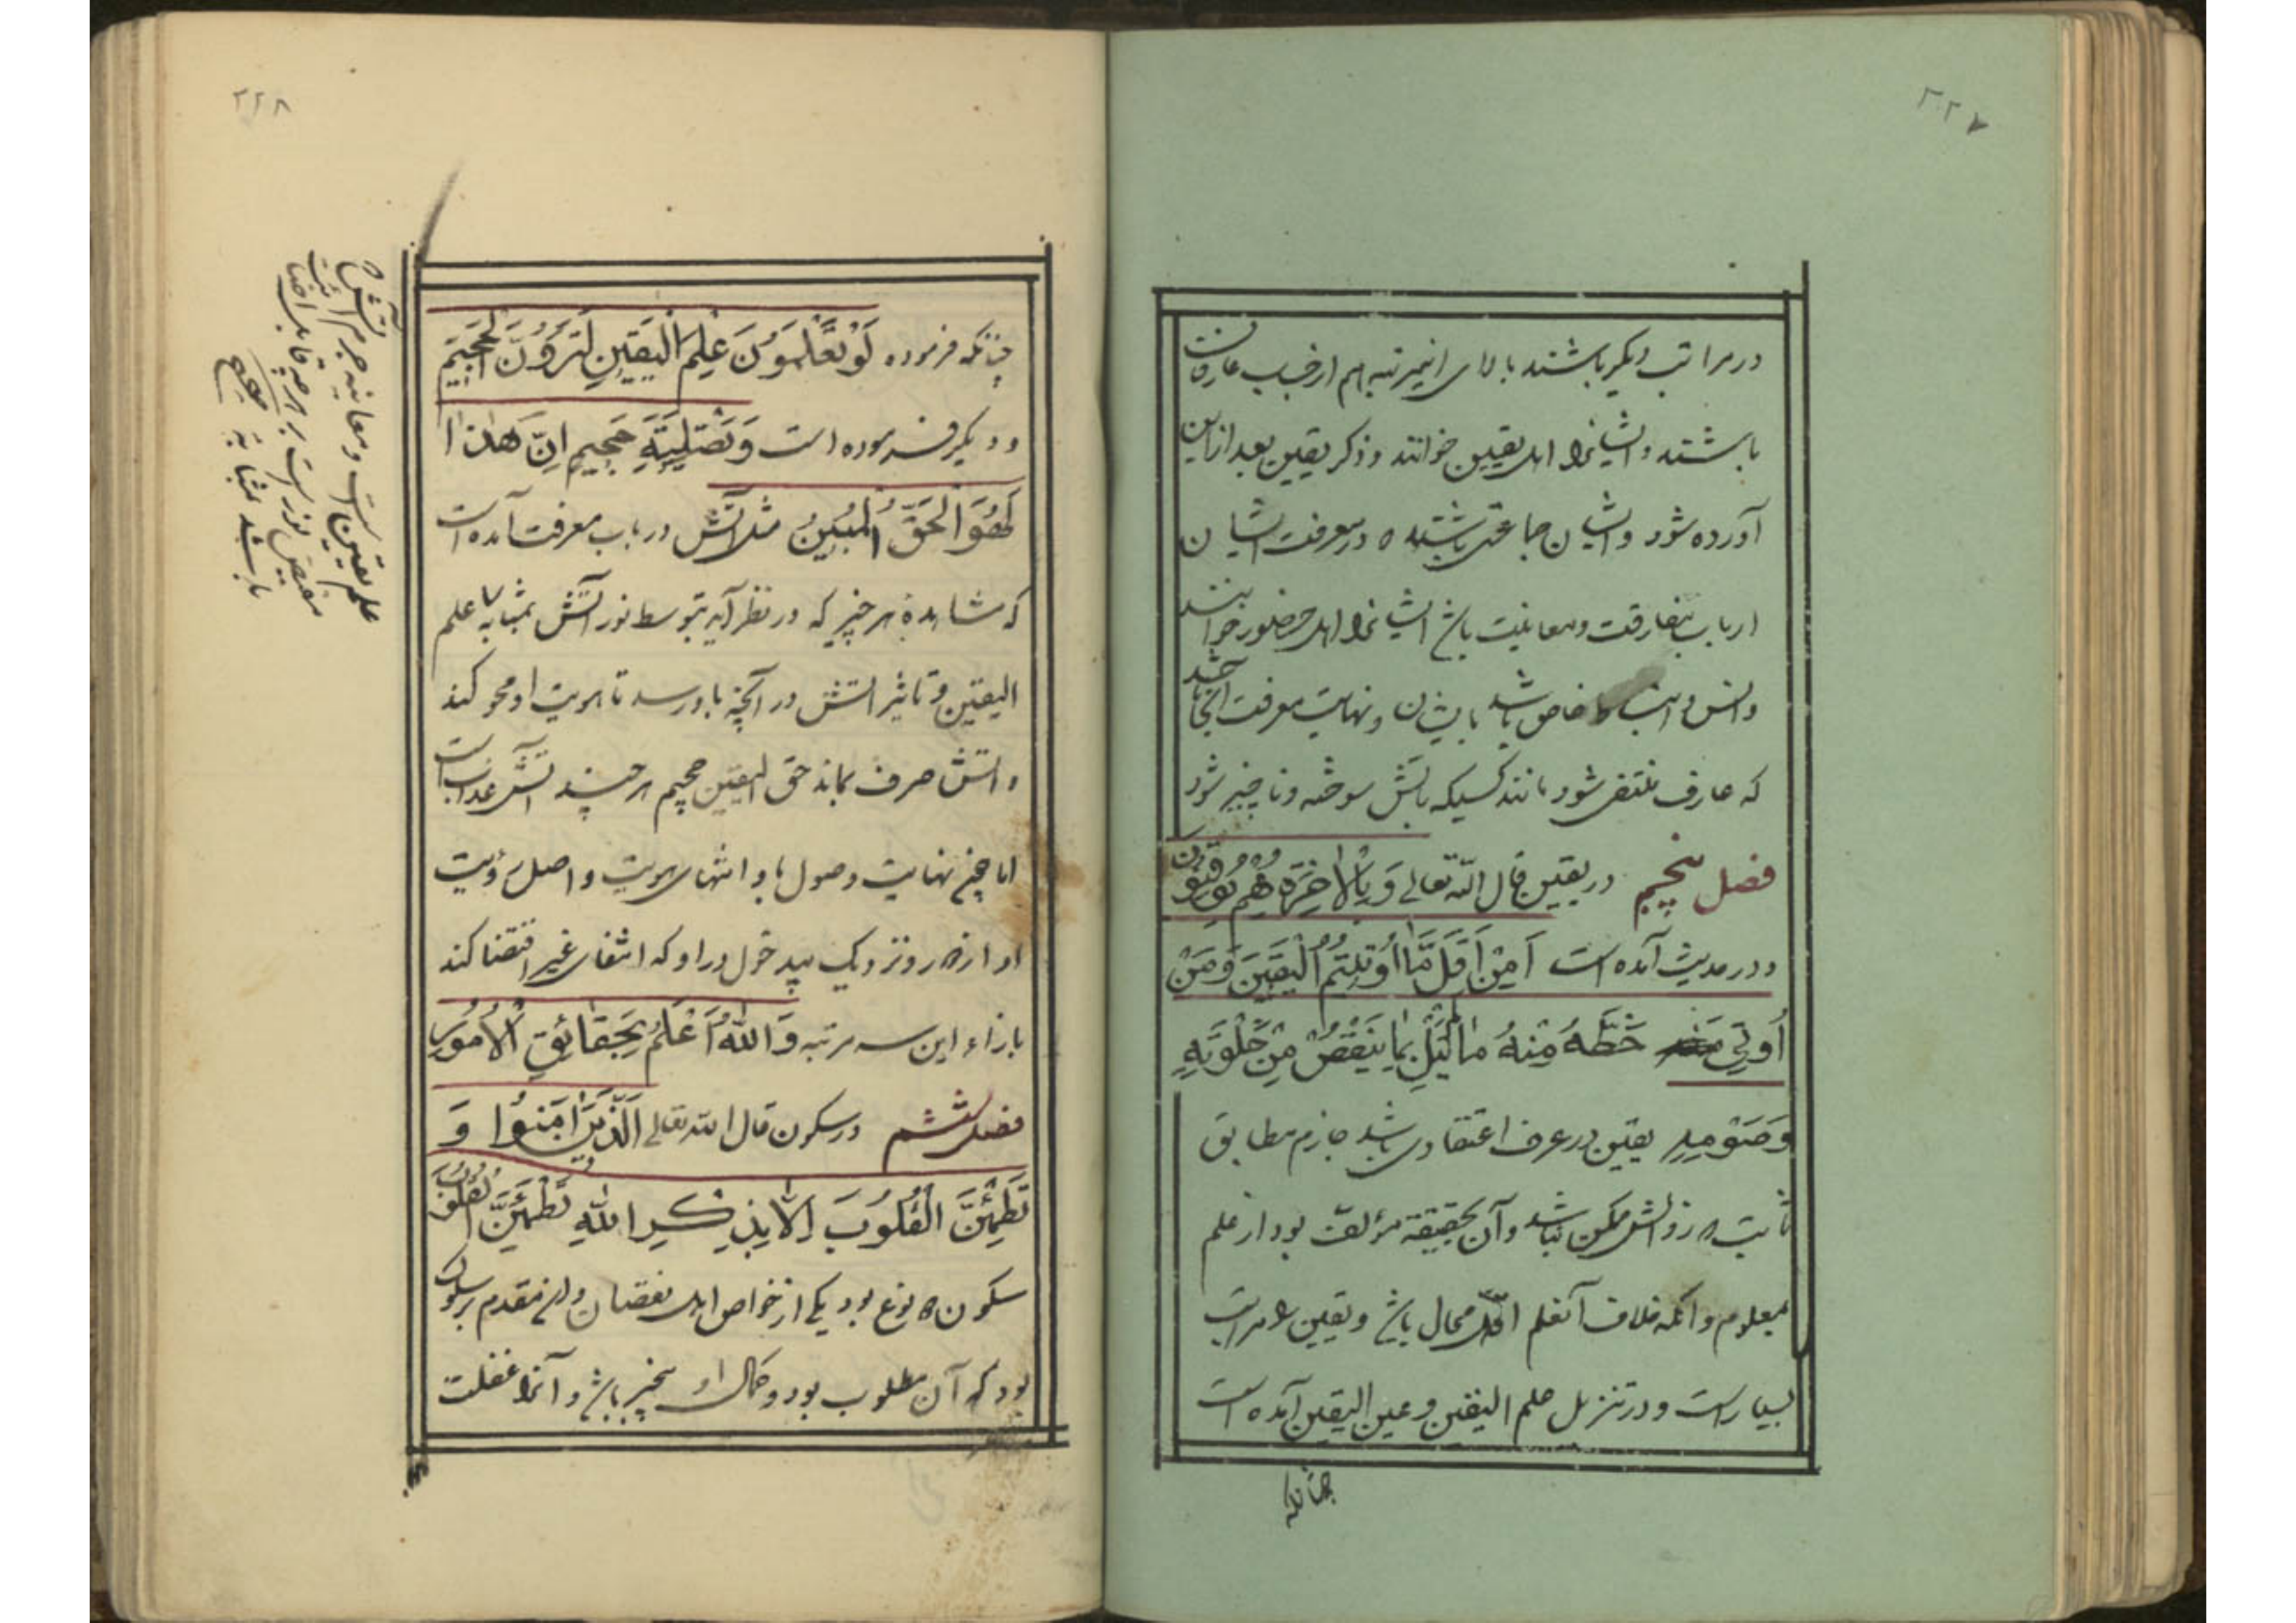 ۲۲۷
در مراتب دیگر باشند بالای اینمرتبه هم از حساب عارفان
باشند و ایشانرا اهل یقین خوانند و ذکر یقین بعد از این
آورده شود و ایشان جماعتی باشند ه در معرفت ایشان
ارباب بنفارقت و معاینت باشد ایشانرا اهل حضور خوانند
وانس و انبساط خاص باشد بایشان و نهایت معرفت آنجا باشد
که عارف منتفی شود مانند کسیکه بآتش سوخته و ناچیز شود
فصل پنجم در یقین قال الله تعالی وَبِالْاخِرَةِ هُمْ يُوقِنُونَ
و در حدیث آمده است اَمِنْ اَقَلِّ مَّا اُوْتِيتُمُ الْيَقِينَ وَمَنْ
اُوتِيَ حَظَّهُ مِنْهُ مايُبَلِ بِمايَنْقُصُ مِنْ صَلٰوتِهِ
وَصَوْمِهِ یقین در عرف اعتقادی باشد جازم مطابق
ثابت ه زوالش ممکن نباشد و آن بحقیقة مؤلف بود از علم
بمعلوم و آنکه خلاف آنعلم اول محال باشد و یقین را مراتب
بسیار است و در تنزیل علم الیقین و عین الیقین آمده است
چنانکه
۲۲۸
چنانکه فرموده لَوْ تَعْلَمُوْنَ عِلْمَ الْيَقِينِ لَتَرَوُنَّ الْجَحِيمَ
و دیگر فرموده است وَتَصْلِيَةِ جَحِيمٍ اِنَّ هٰذا
لَهُوَ الْحَقُّ الْمُبِينُ مثل آتش در باب معرفت آمده است
که مشاهدهٔ هر چیز که در نظر آید بتوسط نور آتش بمثابه علم
الیقین و تاثیر آتش در آنچه باو رسد تا هویت او محو کند
و آتش صرف بماند حق الیقین جحیم هر چند آتش عذاب است
اما چون نهایت وصول باو انتهای هویت و اصل رؤیت
او از دور و نزدیک بدخول در او که انتفای غیر اقتضا کند
بازاء این سه مرتبه وَاللّٰهُ اَعْلَمُ بِحَقائِقِ الْاُمُورِ
فصل ششم در سکون قال الله تعالی اَلَّذِيْنَ اٰمَنُوا وَ
تَطْمَئِنُّ الْقُلُوبُ اَلا بِذِكْرِ اللّٰهِ تَطْمَئِنُّ الْقُلُوبُ
سکون ه نوع بود یکی از خواص اهل نقصان و آن مقدم بر سلوک
بود که آن مطلوب بود و کمال او بیخبر باشد و آنرا غفلت
علم یقین است و معاینه جرم آتش ه
مفیض نور است بر هر چه قابل اضائت
باشد بمثابه
صحیح